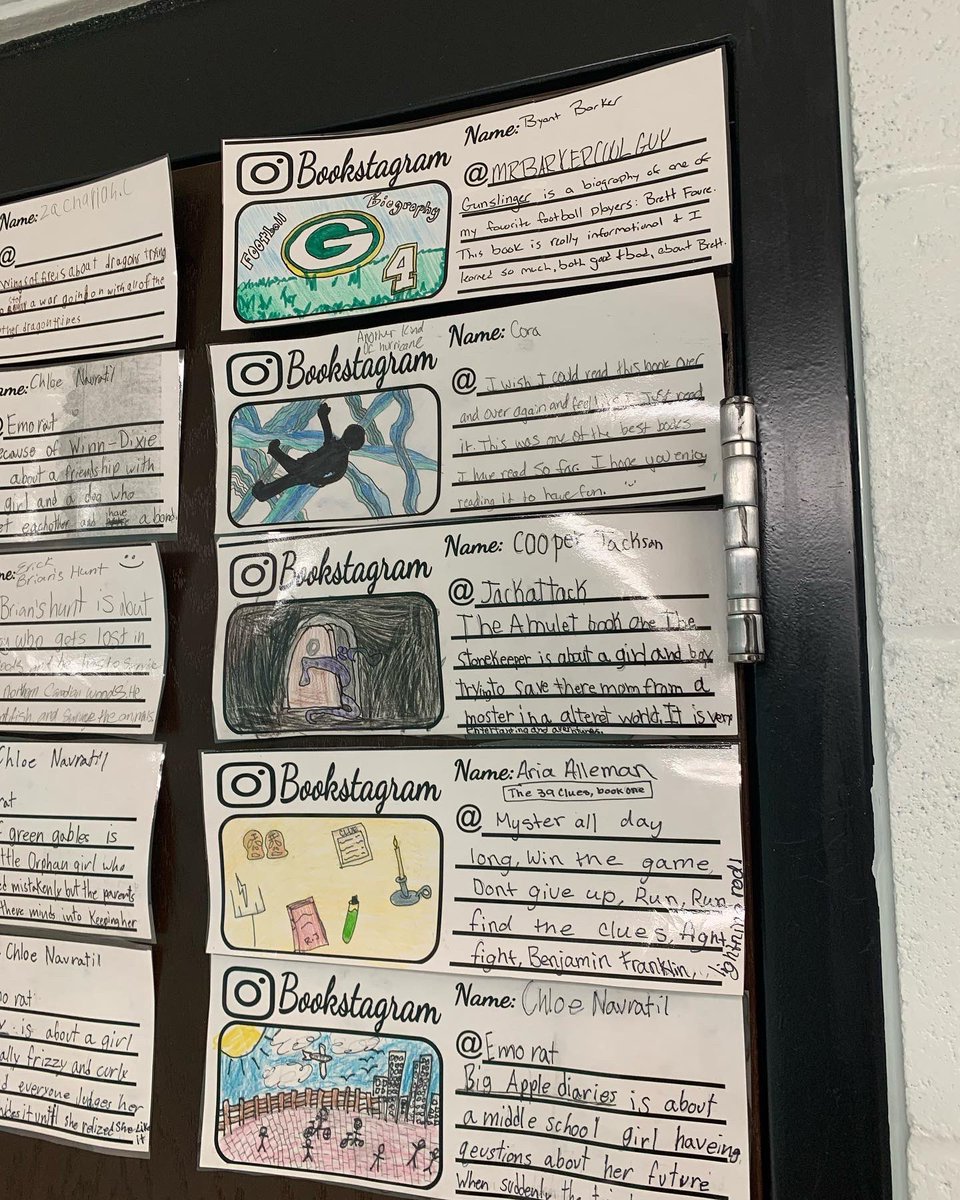 Name: Zachariah.C
@
wings of fire is about dragons trying
to stop a war goin on with all of the
other dragon tribes
Name: Chloe Navratil
@ Emo rat
Because of Winn-Dixie
about a friendship with
girl and a dog who
eachother and have a bond.
Erick
Brian's Hunt
Brian's hunt is about
who gets lost in
and he has to survive
northern woods. He
fish and survive the animals
Chloe Navratil
rat
green gables is
little Orphan girl who
mistakenly but the parents
there minds into keeping her
Chloe Navratil
Emo rat
is about a girl
frizzy and curly
everyone judges her
it until she relized she like it
Bookstagram
Football
Biography
G
4
Name: Byant Barker
@MRBARKERCOOLGUY
Gunslinger is a biography of one of
my favorite football players: Brett Favre.
This book is really informational & I
learned so much, both good & bad, about Brett.
Another kind
Of hurricane
Bookstagram
Name: Cora
@ I wish I could read this book over
and over again and feel like I Just read
it. This was one of the best books
I have read so far. I hope you enjoy
reading it to have fun.
Bookstagram
Name: Cooper Jackson
@ Jackattack
The Amulet book one The
stonekeeper is about a girl and boy
trying to save there mom from a
moster in a alteret world. It is very
entertaining and
Bookstagram
CLUE
R.J
Name: Aria Alleman
The 39 Clues, book one
@ Myster all day
long, Win the game,
Dont give up, Run, Run
find the clues, fight,
fight, Benjamin Franklin,
lightning red!
Bookstagram
Name: Chloe Navratil
@Emo rat
Big Apple diaries is about
a middle school girl haveing
qeustions about her future
When suddenly the